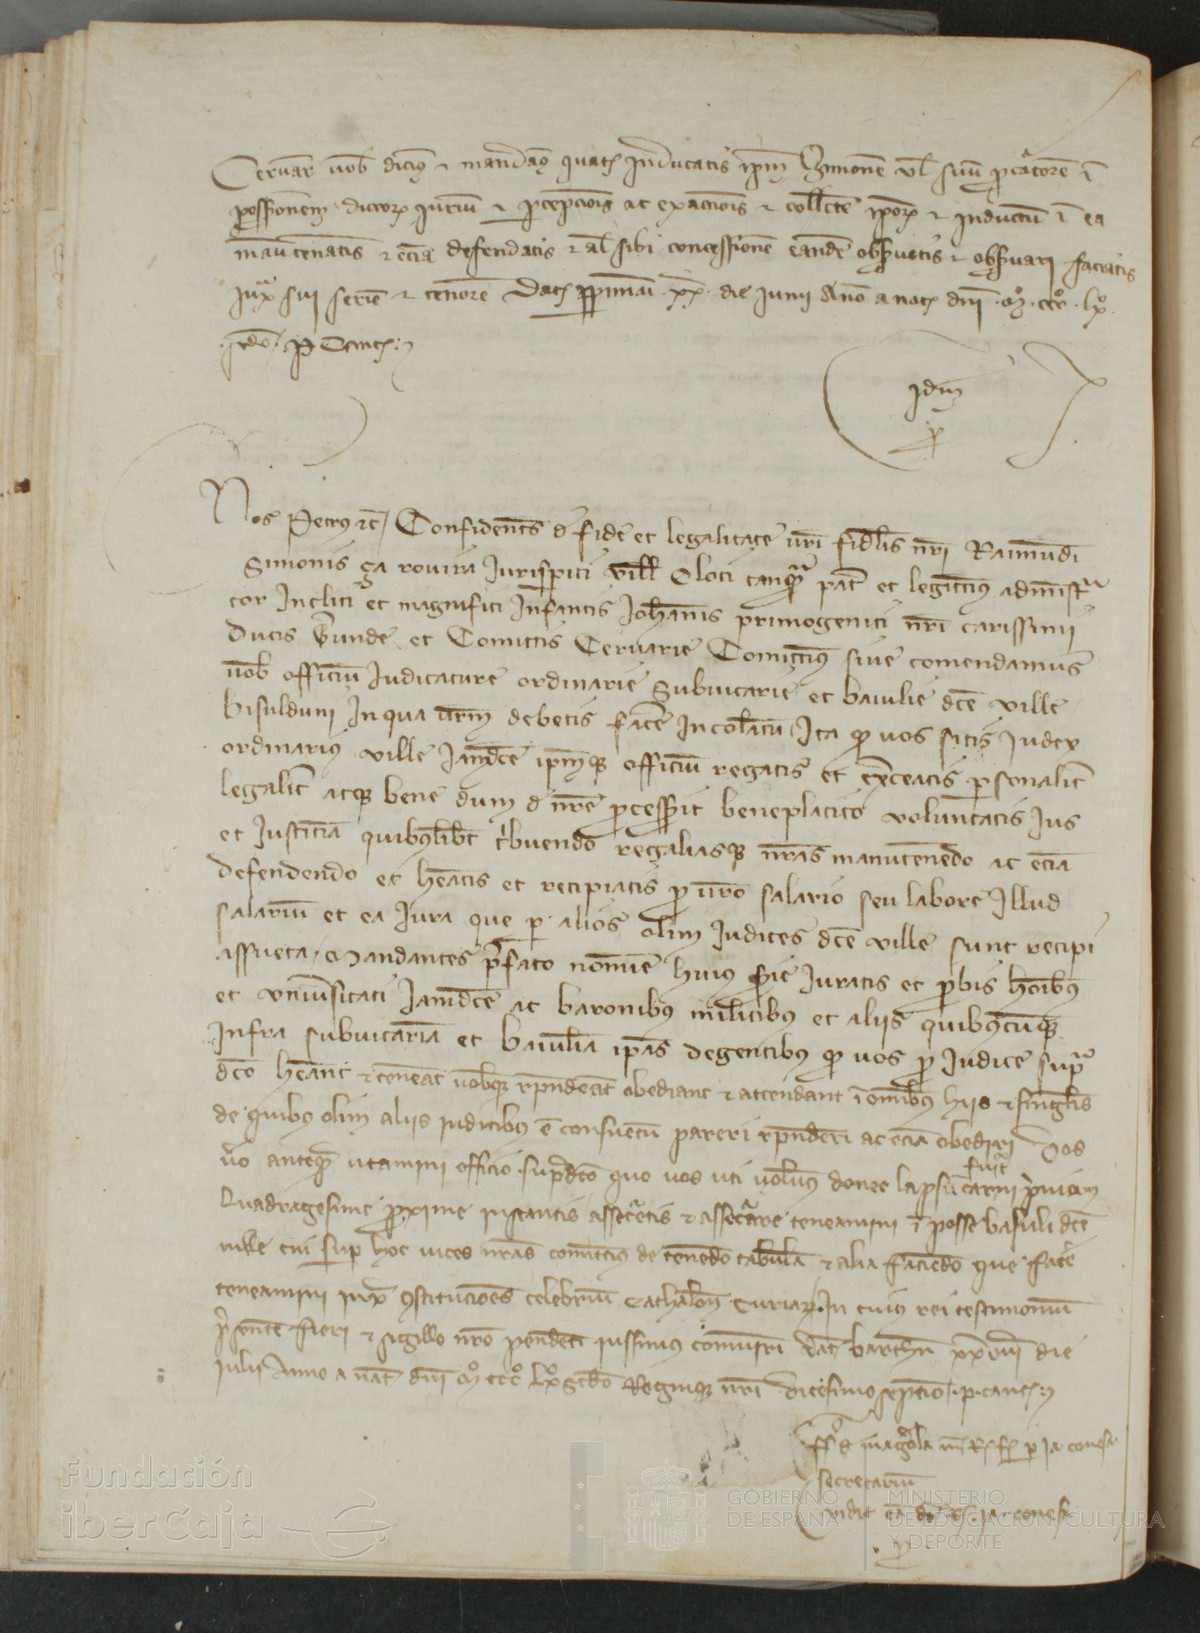 Cervar vob dicim et mandam quatz inducatis ipm Simonem vl suu pcatorem i
possessionem dictorz iurium et pcepcionis ac exactionis et collecte ipoz et inductu i ea
manutenatis et ecia defendatis et al sibi concessionem eande observetis et observari faciatis
iux sui serie et tenore Datz ppiniani xx die iunii Ano a natz dni mo ccco lxo
scdo P Canc
Idm
p
Nos Petrus etc Confidentes d fide et legalitate vri fidelis nri Raimundi
Simonis ça rovira Iurispiti ville Oloti tanqua pat et legittimus administra
tor Incliti et magnifici Infantis Iohannis primogeniti nri carissimi
Ducis Gerunde et Comitis Cervarie Comittimus sive comendamus
vob officium Iudicature ordinarie Subvicarie et baiulie dce ville
bisulduni In qua vrm debetis facere Incolatu Ita qp vos sitis Iudex
ordinarius ville Iamdce ipmqz officium regatis et exceatis psonalit
legalit atqz bene dum d nre pcesserit beneplacito voluntatis Ius
et Iusticia quibuslibet tribuendo regaliasqz nras manutenendo ac ecia
defendendo et heatis et recipiatis p vro salario seu labore Illud
salariu et ea Iura que p alios olim Iudices dce ville sunt recipi
assueta Mandantes pfato nomine huius serie Iuratis et pbis hoibus
et universitati Iamdce ac baronibus militibus et aliis quibuscumqz
Infra subvicaria et baiulia ipas degentibus qp vos p Iudice supra
dco heant et teneat vobqz rpndeat obediant et attendant i omibus hiis et singlis
de quibus olim aliis iudicibus e consuetu pareri rpnderi ac ecia obediri Vos
vo anteqz utamini officio supdco quo vos uti volumus donec lapsu fuit carni pvium
Quadragesime pxime instantis assecretis et assecurare teneamini i posse baiuli dce
ville cui sup hoc vices nras comittimus de tenendo tabula et alia faciendo que facere
teneamini iux constitucioes celebriu Cathalon Curiarz In cuius rei testimonium
psente fieri et sigillo nro pendeti iussimus comuniri Dat barchn xxviii die
iulii Anno a nat dni mo ccco lxo Scdo Regniqz nri vicesimo septimo P Canc
ff d magrola m R f p Ia conesa
secretarium
vidit ea dns R Ia conesa
p
Fundación
iberCaja
GOBIERNO
DE ESPAÑA
MINISTERIO
DE EDUCACIÓN, CULTURA
Y DEPORTE